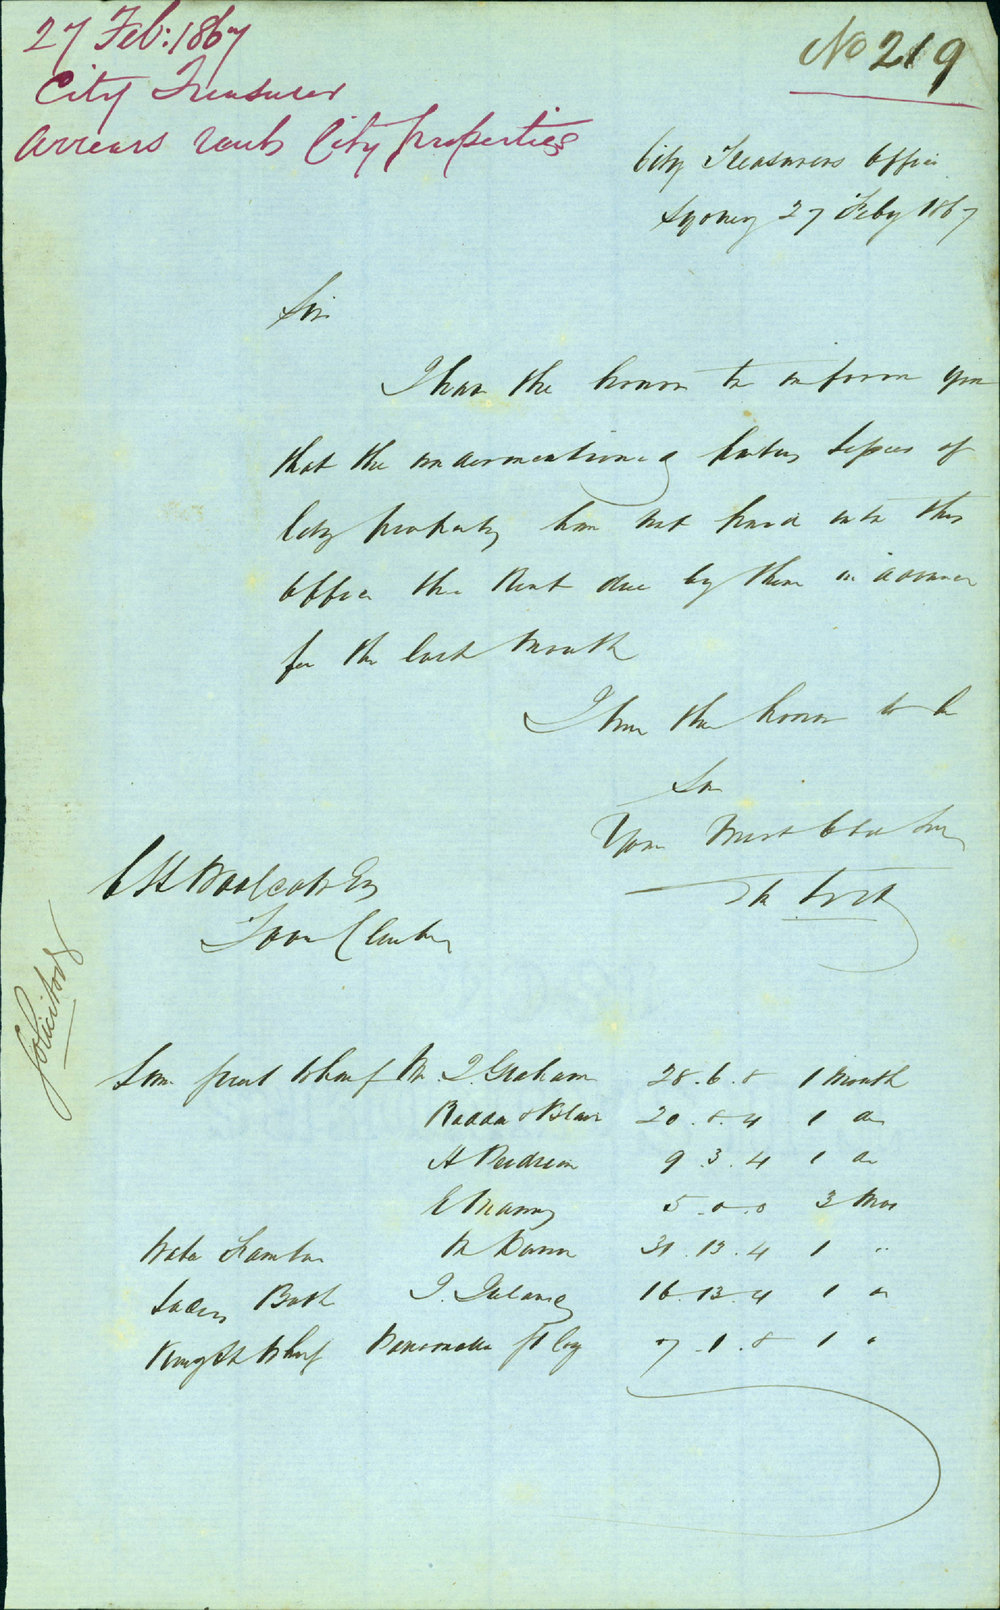 27 Feb: 1867
City Treasurer
Arrears rents City properties
No 219
City Treasurers Office
Sydney 27 Feby 1867
Sir
I have the honor to inform you
that the undermentioned parties Lessees of
City property have not paid into this
Office the Rent due by them in advance
for the last Month
I have the honor to be
Sir
Your Most Obdt Serv
C H Woolcott Esq
Town Clerk
Solicitor
Wharf J. Graham 28. 6. 8 1 Month
20. 8. 4 1 do
9. 3. 4 1 do
E Manny 5. 0. 0 3 Mos
31. 13. 4 1 "
Ladies Bath J. 16. 13. 4 1 do
King St Wharf 7. 1. 8 1 "